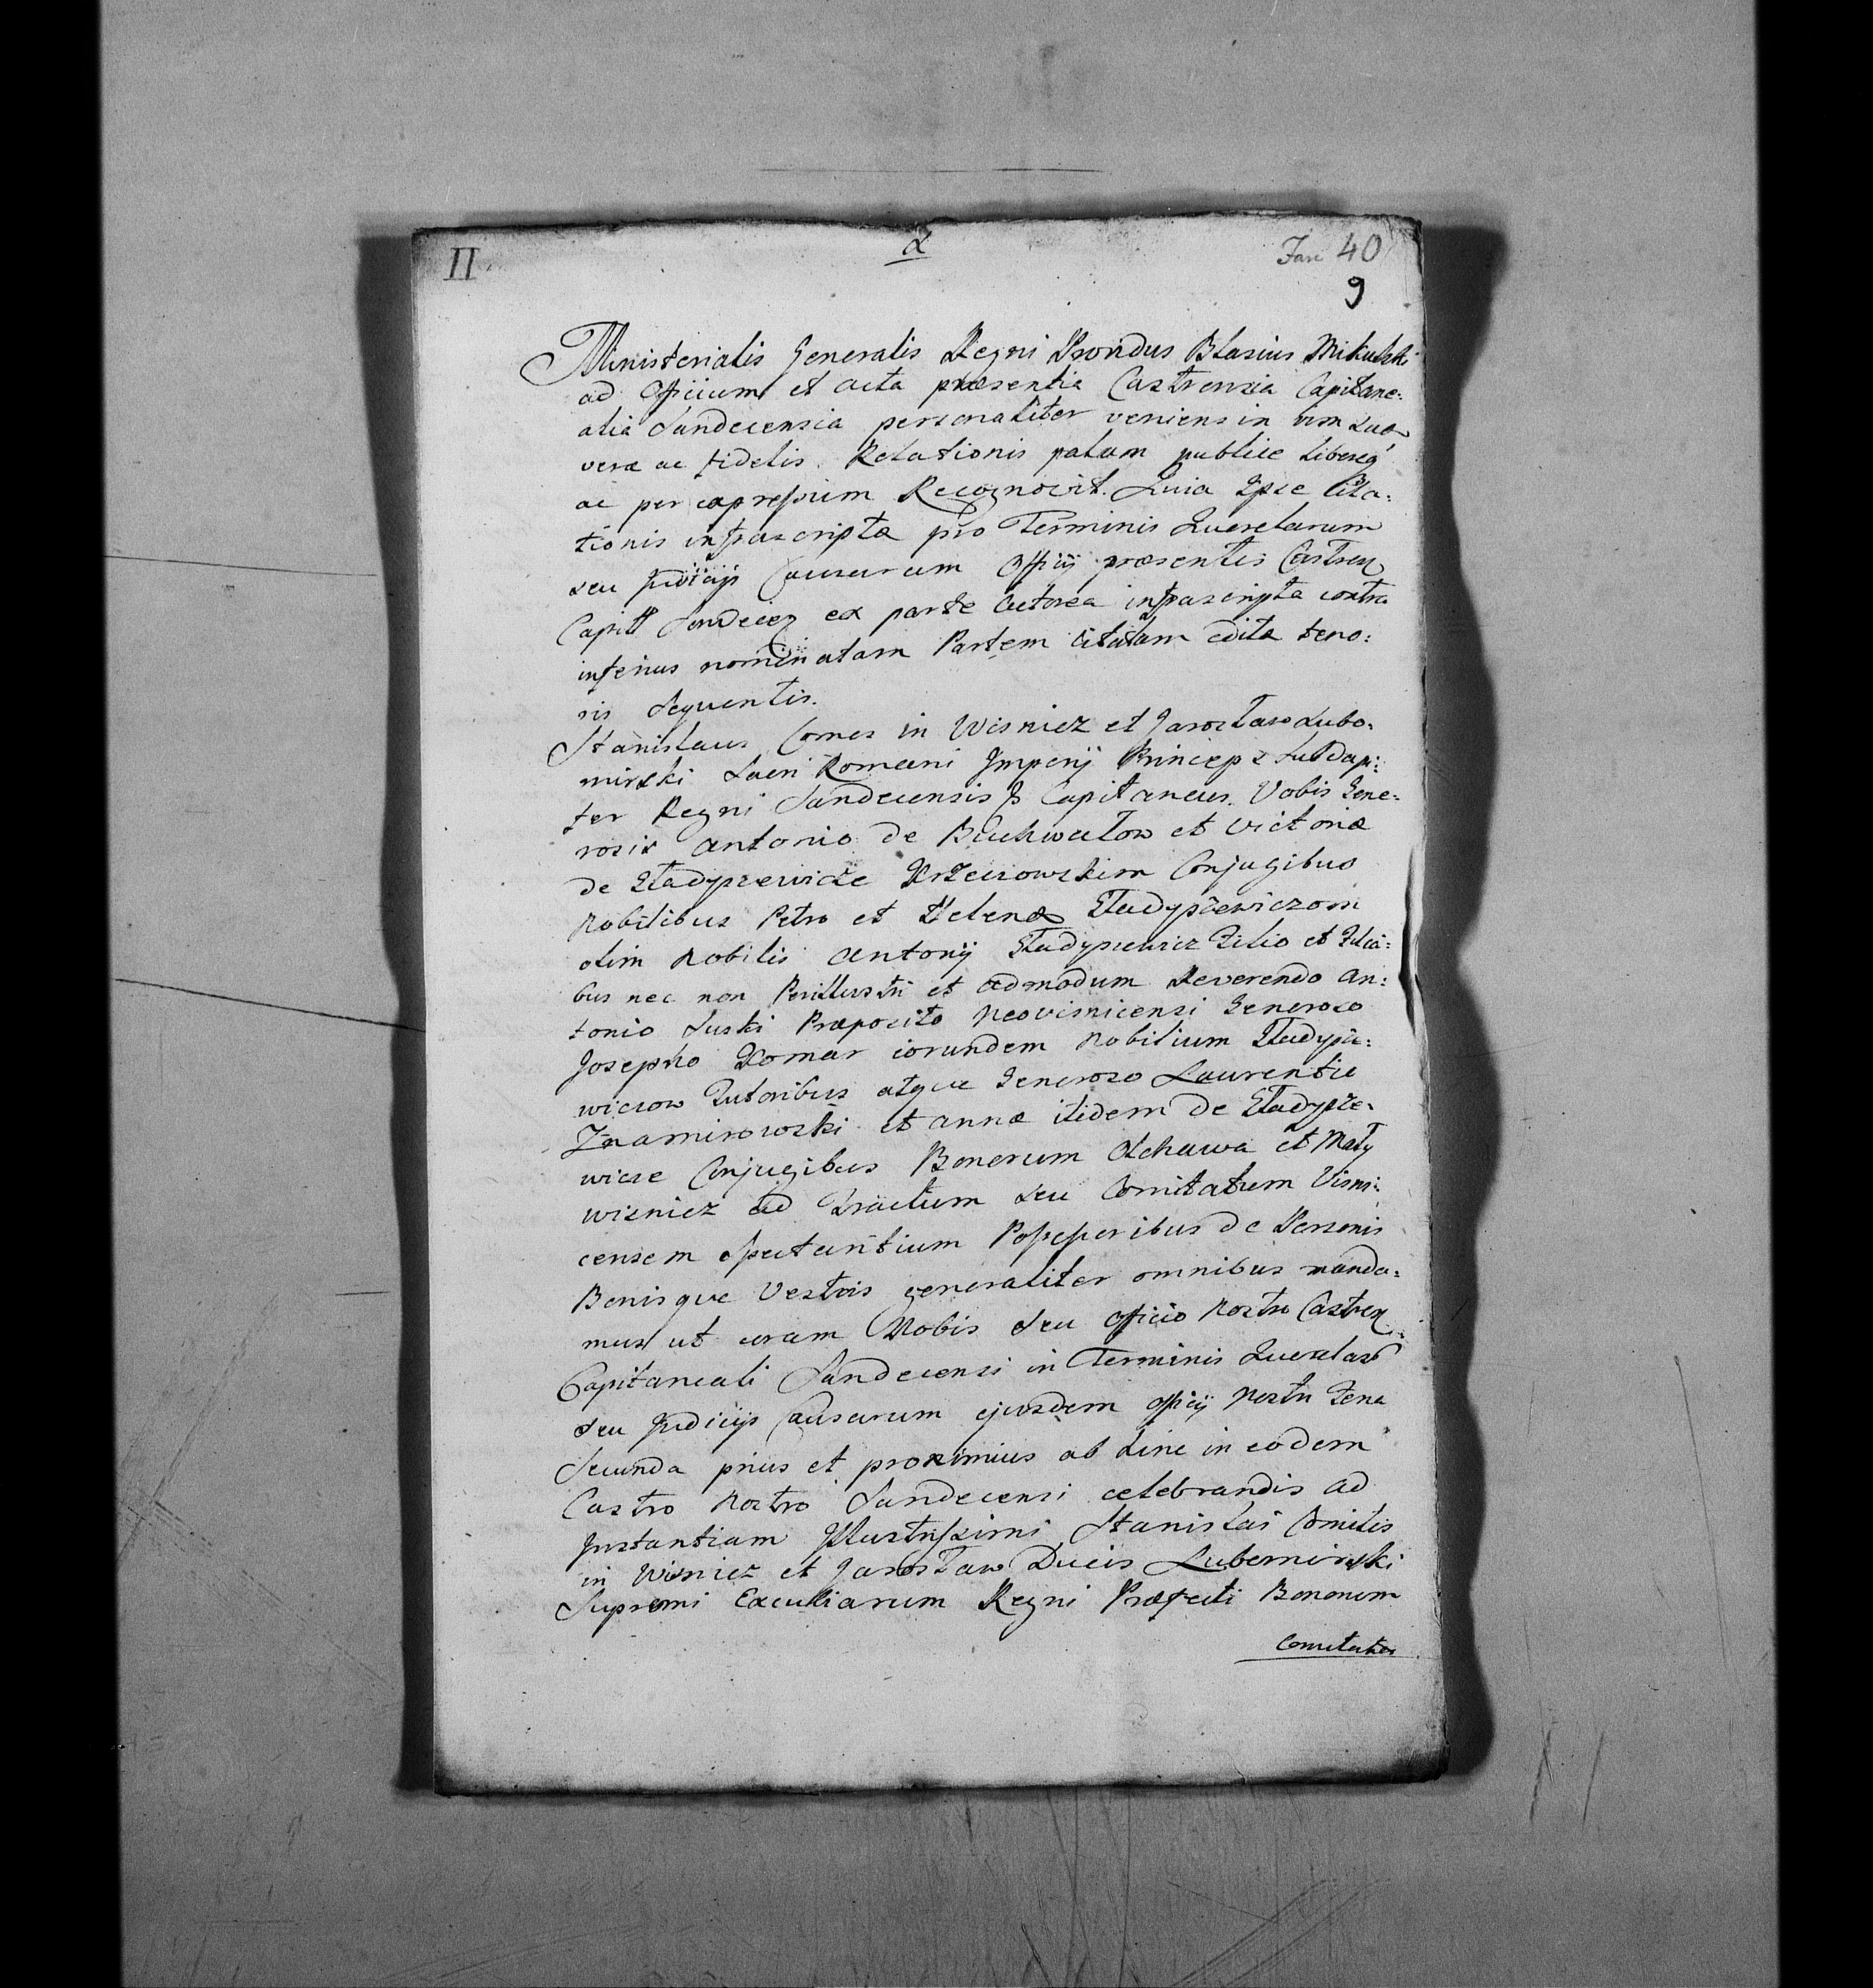 II
2
Fasc 40
9
Ministerialis Generalis Regni Providus Blasius Mikulski
ad Officium et acta præsentia Castrensia Capitane:
alia Sandecensia personaliter veniens in vim suæ
veræ ac fidelis Relationis palam publice libereq
ac per expressum Recognovit. Quia Ipse Cita:
tionis infrascriptæ pro Terminis Querelarum
seu Judicijs Causarum Officij præsentis Castren
Capitt Sandecen ex parte Actorea infrascripta contra
inferius nominatam Partem Citatam editæ teno:
ris sequentis.
Stanislaus Comes in Wisnicz et Jarosław Lubo:
mirski Sacri Romani Imperij Princeps Subdapi:
fer Regni Sandecensis Capitaneus. Vobis Gene:
rosis Antonio de et Victoriæ
de Conjugibus
Nobilibus Petro et Helenæ
olim Nobilis Antonij Filio et
bus nec non Perillustri et admodum Reverendo An:
tonio Suski Præposito Neovisnicensi Generoso
Josepho Komar eorundem Nobilium
wiczow Tutoribus atque Generoso Laurentio
Znamirowski et Annæ itidem de
wicze Conjugibus Bonorum Olchawa et Mały
wisnicz ad Tractum seu Comitatum Visni:
censem spectantium Possessoribus de Personis
Bonisque Vestris generaliter omnibus manda:
mus ut coram Nobis seu Officio Nostro Castren
Capitaneali Sandecensi in Terminis Querelar
seu Judicijs Causarum ejusdem Officij Nostri Feria
Secunda prius et proximius ab hinc in eodem
Castro Nostro Sandecensi celebrandis ad
Instantiam Illustrissimi Stanislai Comitis
in Wisnicz et Jarosław Ducis Lubomirski
Supremi Excubiarum Regni Præfecti Bonorum
Comitatus